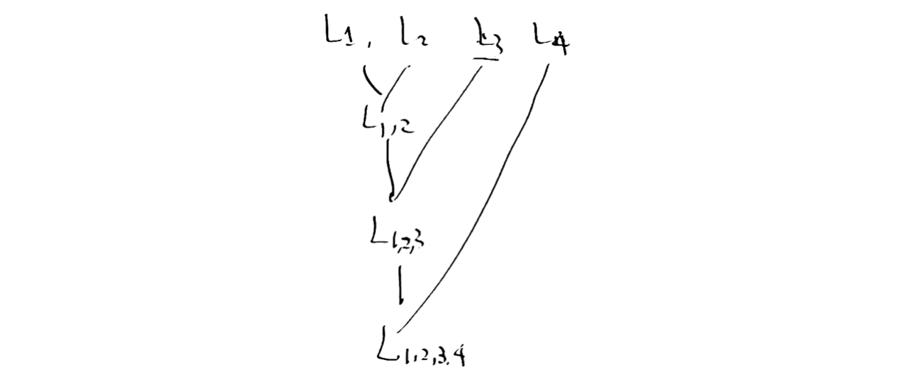 L1, L2 L3 L4
L1,2
L1,2,3
L1,2,3,4